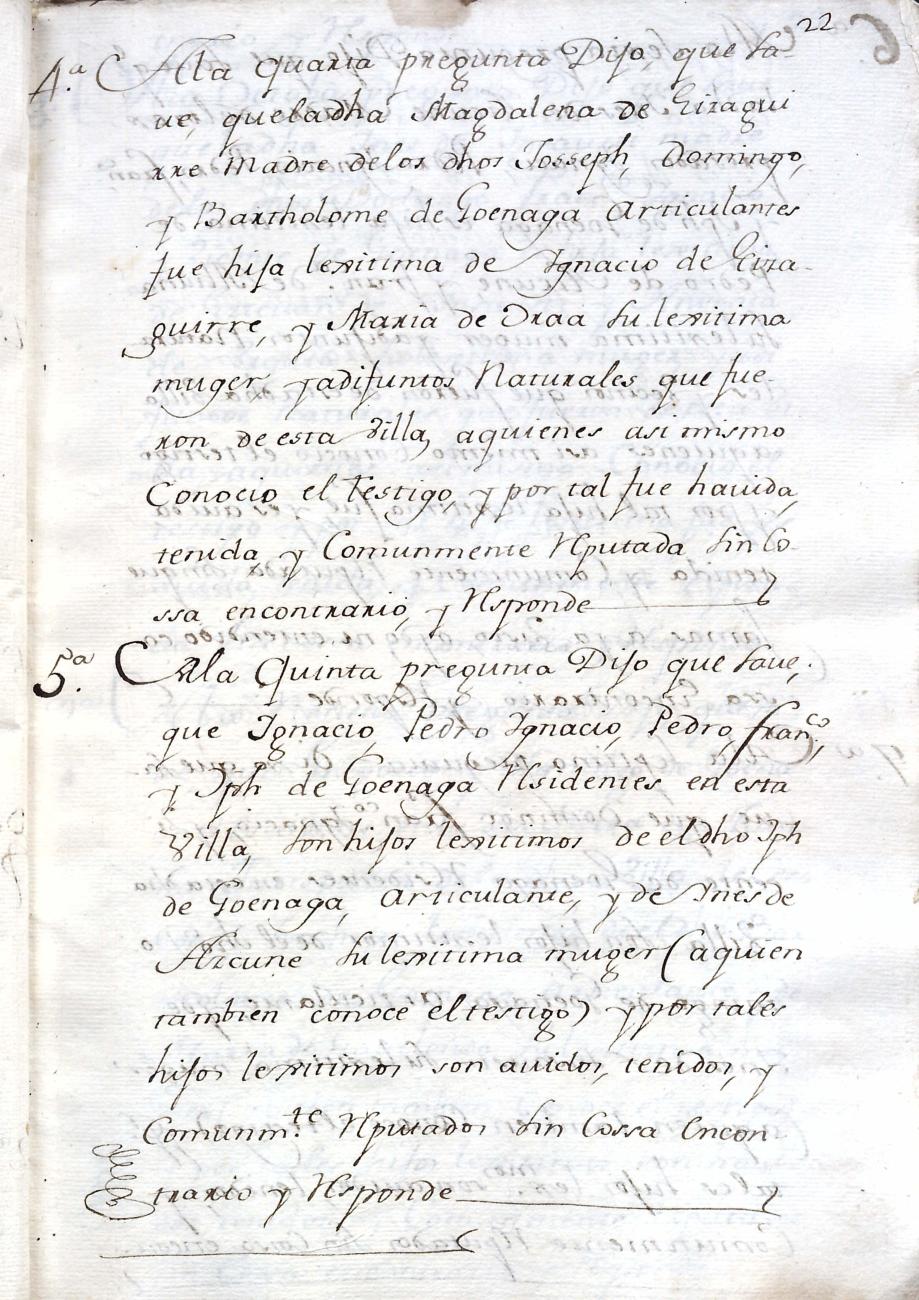 22
4.a A la quarta pregunta Dijo, que sa-
ue, que la dha Magdalena de Eizagui
rre Madre de los dhos Josseph, Domingo,
y Bartholome de Goenaga Articulantes
fue hija lexitima de Ygnacio de Eiza-
guirre, y Maria de Oraa su lexitima
muger, ya difuntos Naturales que fue-
ron de esta Villa, a quienes asi mismo
Conocio el testigo, y por tal fue hauida,
tenida, y Comunmente Rputada sin Co-
ssa encontrario, y Rsponde
5.a A la Quinta pregunta Dijo que saue,
que Ignacio, Pedro Ignacio, Pedro, franco,
y Jph de Goenaga Rsidentes en esta
Villa, son hijos lexitimos de el dho Jph
de Goenaga, Articulante, y de Ynes de
Azcune su lexitima muger (a quien
tambien conoce el testigo) y por tales
hijos lexitimos son auidos, tenidos, y
Comunm.te Rputados sin Cossa Encon
trario y Rsponde